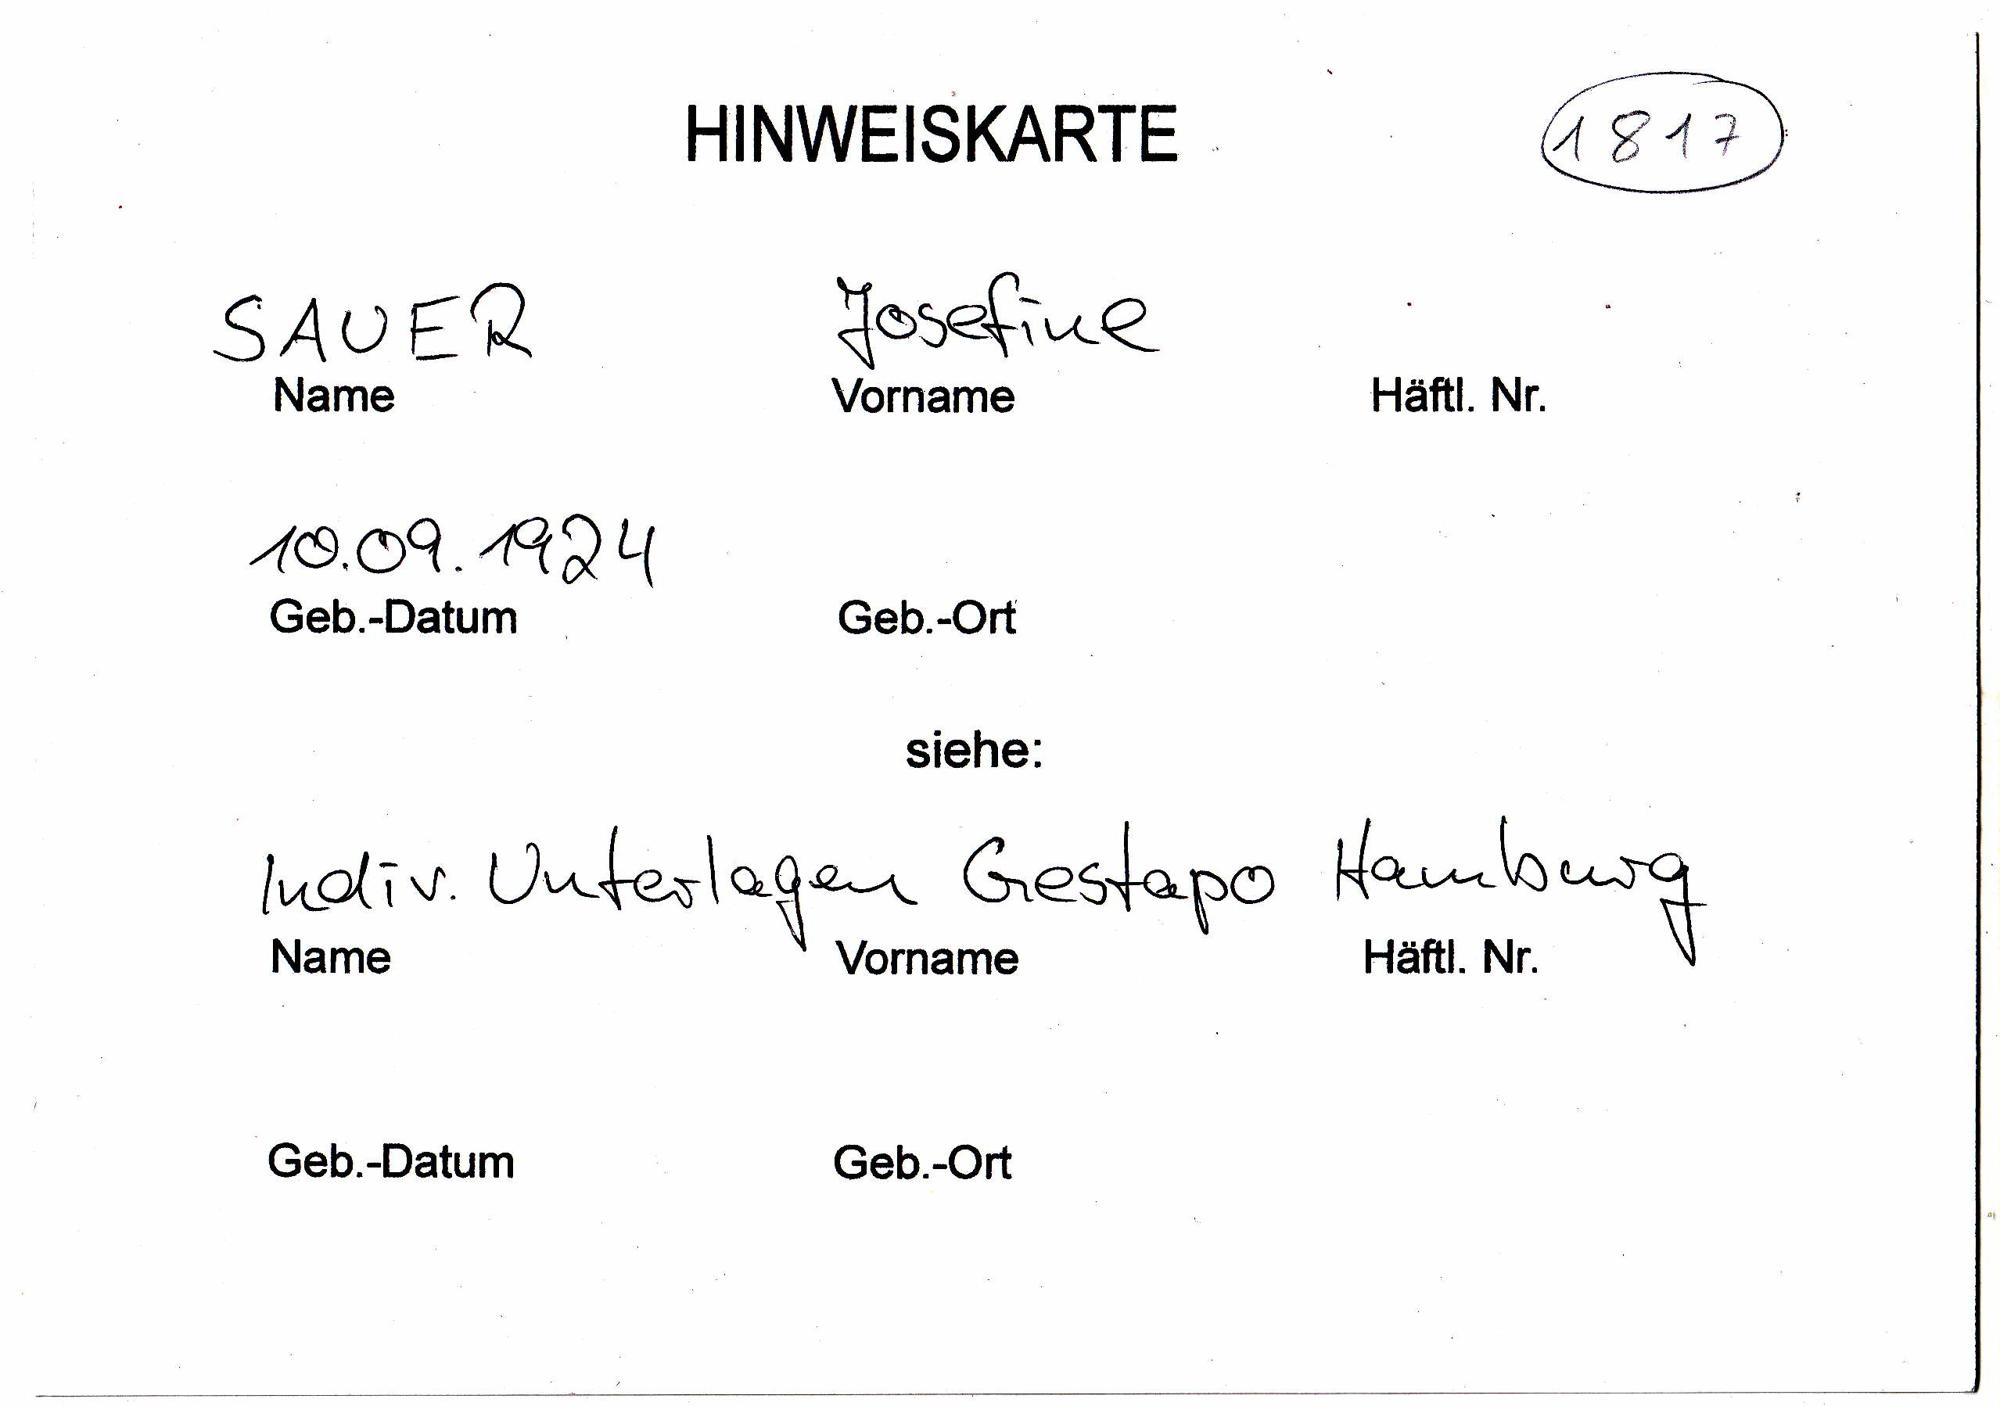 HINWEISKARTE 1817
SAUER Josefine
Name Vorname Häftl. Nr.
10.09.1924
Geb.-Datum Geb.-Ort
siehe:
Indiv. Unterlagen Gestapo Hamburg
Name Vorname Häftl. Nr.
Geb.-Datum Geb.-Ort